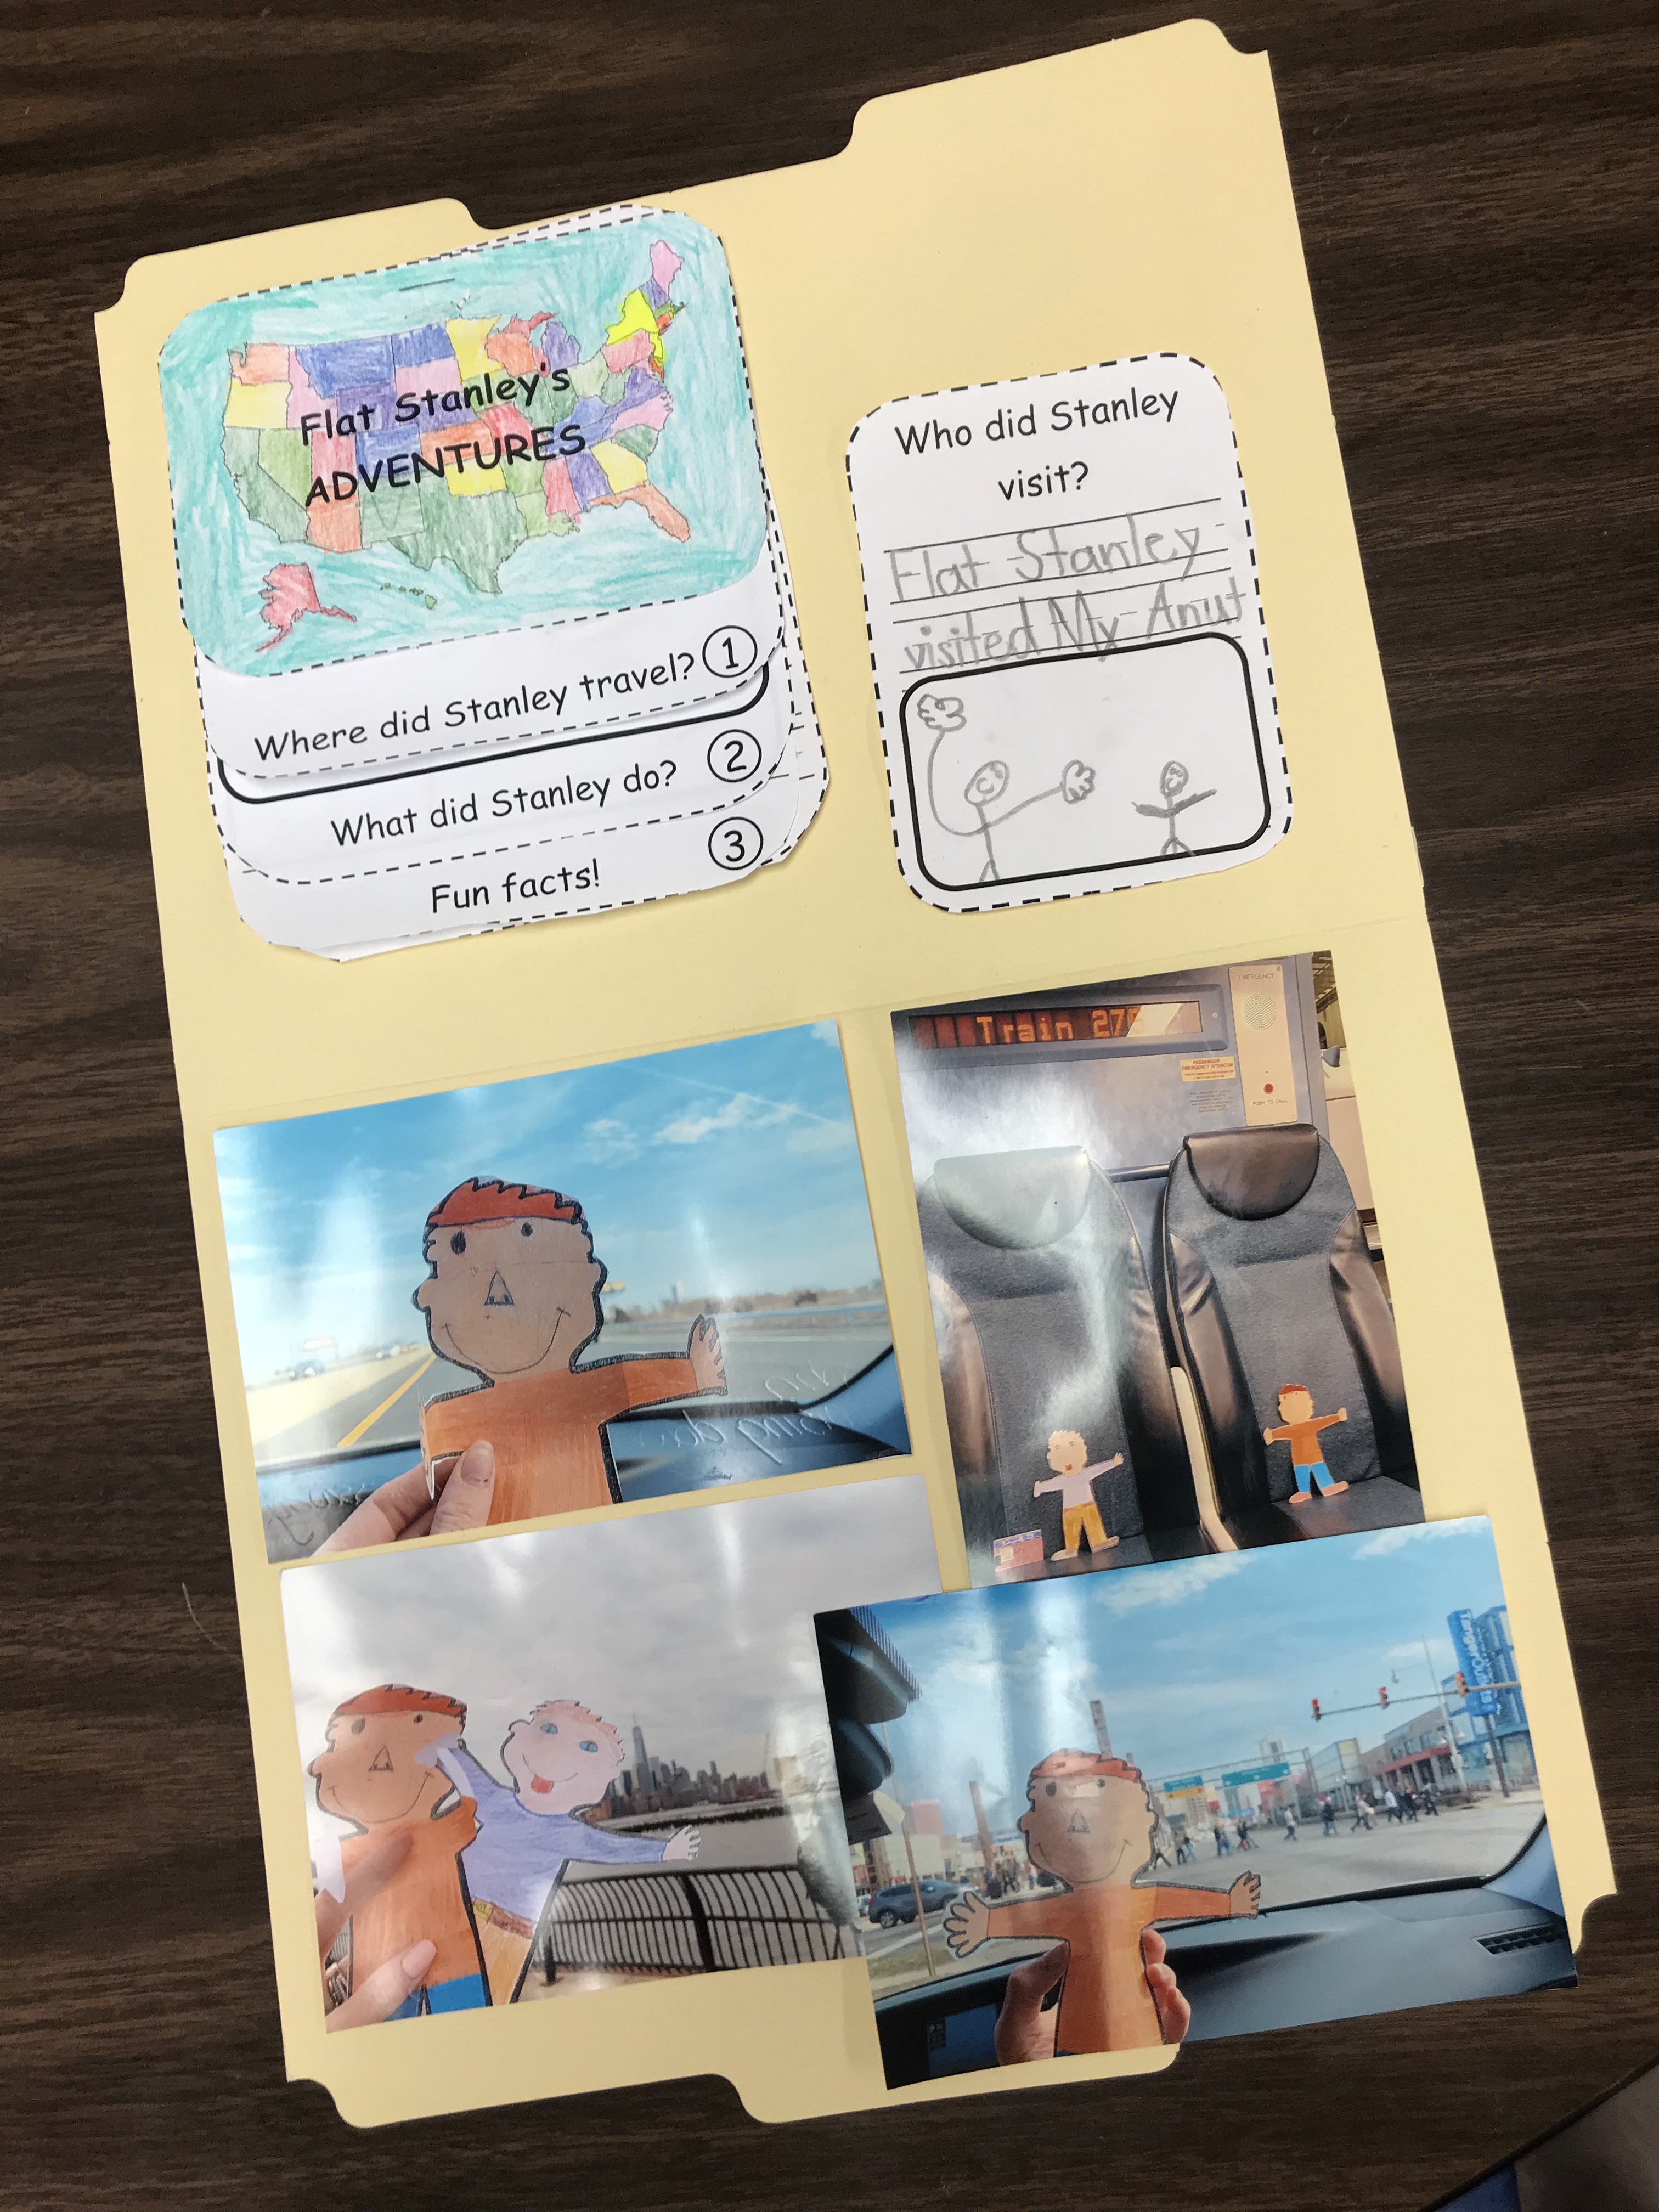 Flat Stanley's
ADVENTURES
Where did Stanley travel? 1
What did Stanley do? 2
Fun facts! 3
Who did Stanley
visit?
Flat Stanley
visited My Anut
EMERGENCY
Train 275
PASSENGER
EMERGENCY INTERCOM
PUSH TO CALL